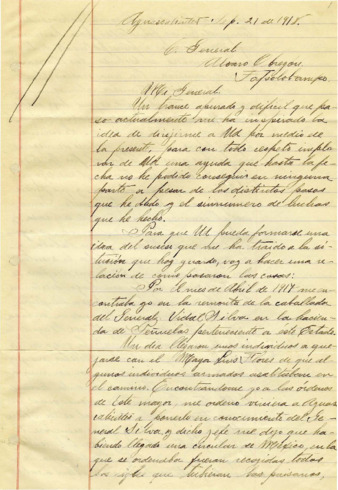 Aguascalientes, Sep. 21 de 1918.
C. General
Alvaro Obregon
Topolobampo.
Mi General
Un trance apurado y dificil que pa-
so actualmente me ha inspirado la
idea de dirijirme a Ud por medio de
la presente, para con todo respeto implo-
rar de Ud una ayuda que hasta la fe-
cha no he podido conseguir en ninguna
parte a pesar de los distintos pasos
que he dado y el sinnumero de luchas
que he hecho.
Para que Ud pueda formarse una
idea del suceso que me ha traido a la si-
tuación que hoy guardo, voy a hacer una re-
lación de como pasaron las cosas:
Por el mes de Abril de 1917 me en-
contraba yo en la remonta de la caballada
del General Vidal Silva en la hacien-
da de perteneciente a este Estado.
Un dia llegaron unos individuos a que-
jarse con el Mayor Luis Flores de que al-
gunos individuos armados asaltaban en
el camino. Encontrandome yo a las órdenes
de este mayor, me ordenó viniera a Aguas-
calientes a ponerlo en conocimiento del Ge-
neral Silva, y dicho jefe me dijo que ha-
biendo llegado una circular de México, en la
que se ordenaba fueran recogidas todas
los rifles que tubieran los paisanos,